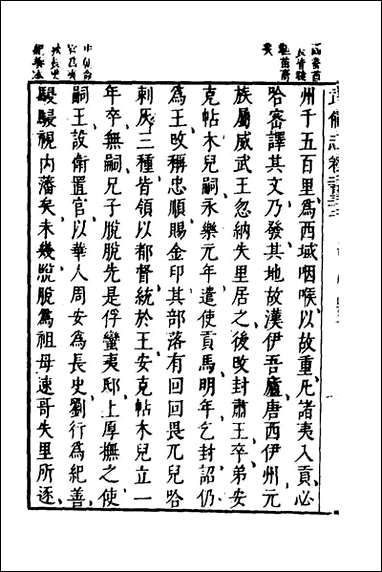 武備志卷二百二十三
州千五百里爲西域咽喉以故重凡諸夷入貢必
哈密譯其文乃發其地故漢伊吾廬唐西伊州元
族屬威武王忽納失里居之後改封肅王卒弟安
克帖木兒嗣永樂元年遣使貢馬明年乞封詔仍
爲王改稱忠順賜金印其部落有回回畏兀兒哈
剌灰三種皆領以都督統於王安克帖木兒立一
年卒無嗣兄子脫脫先是俘蠻夷邸上厚撫之使
嗣王設衛置官以華人周安爲長史劉行爲紀善
駸駸視内藩矣未幾脫脫爲祖母速哥失里所逐